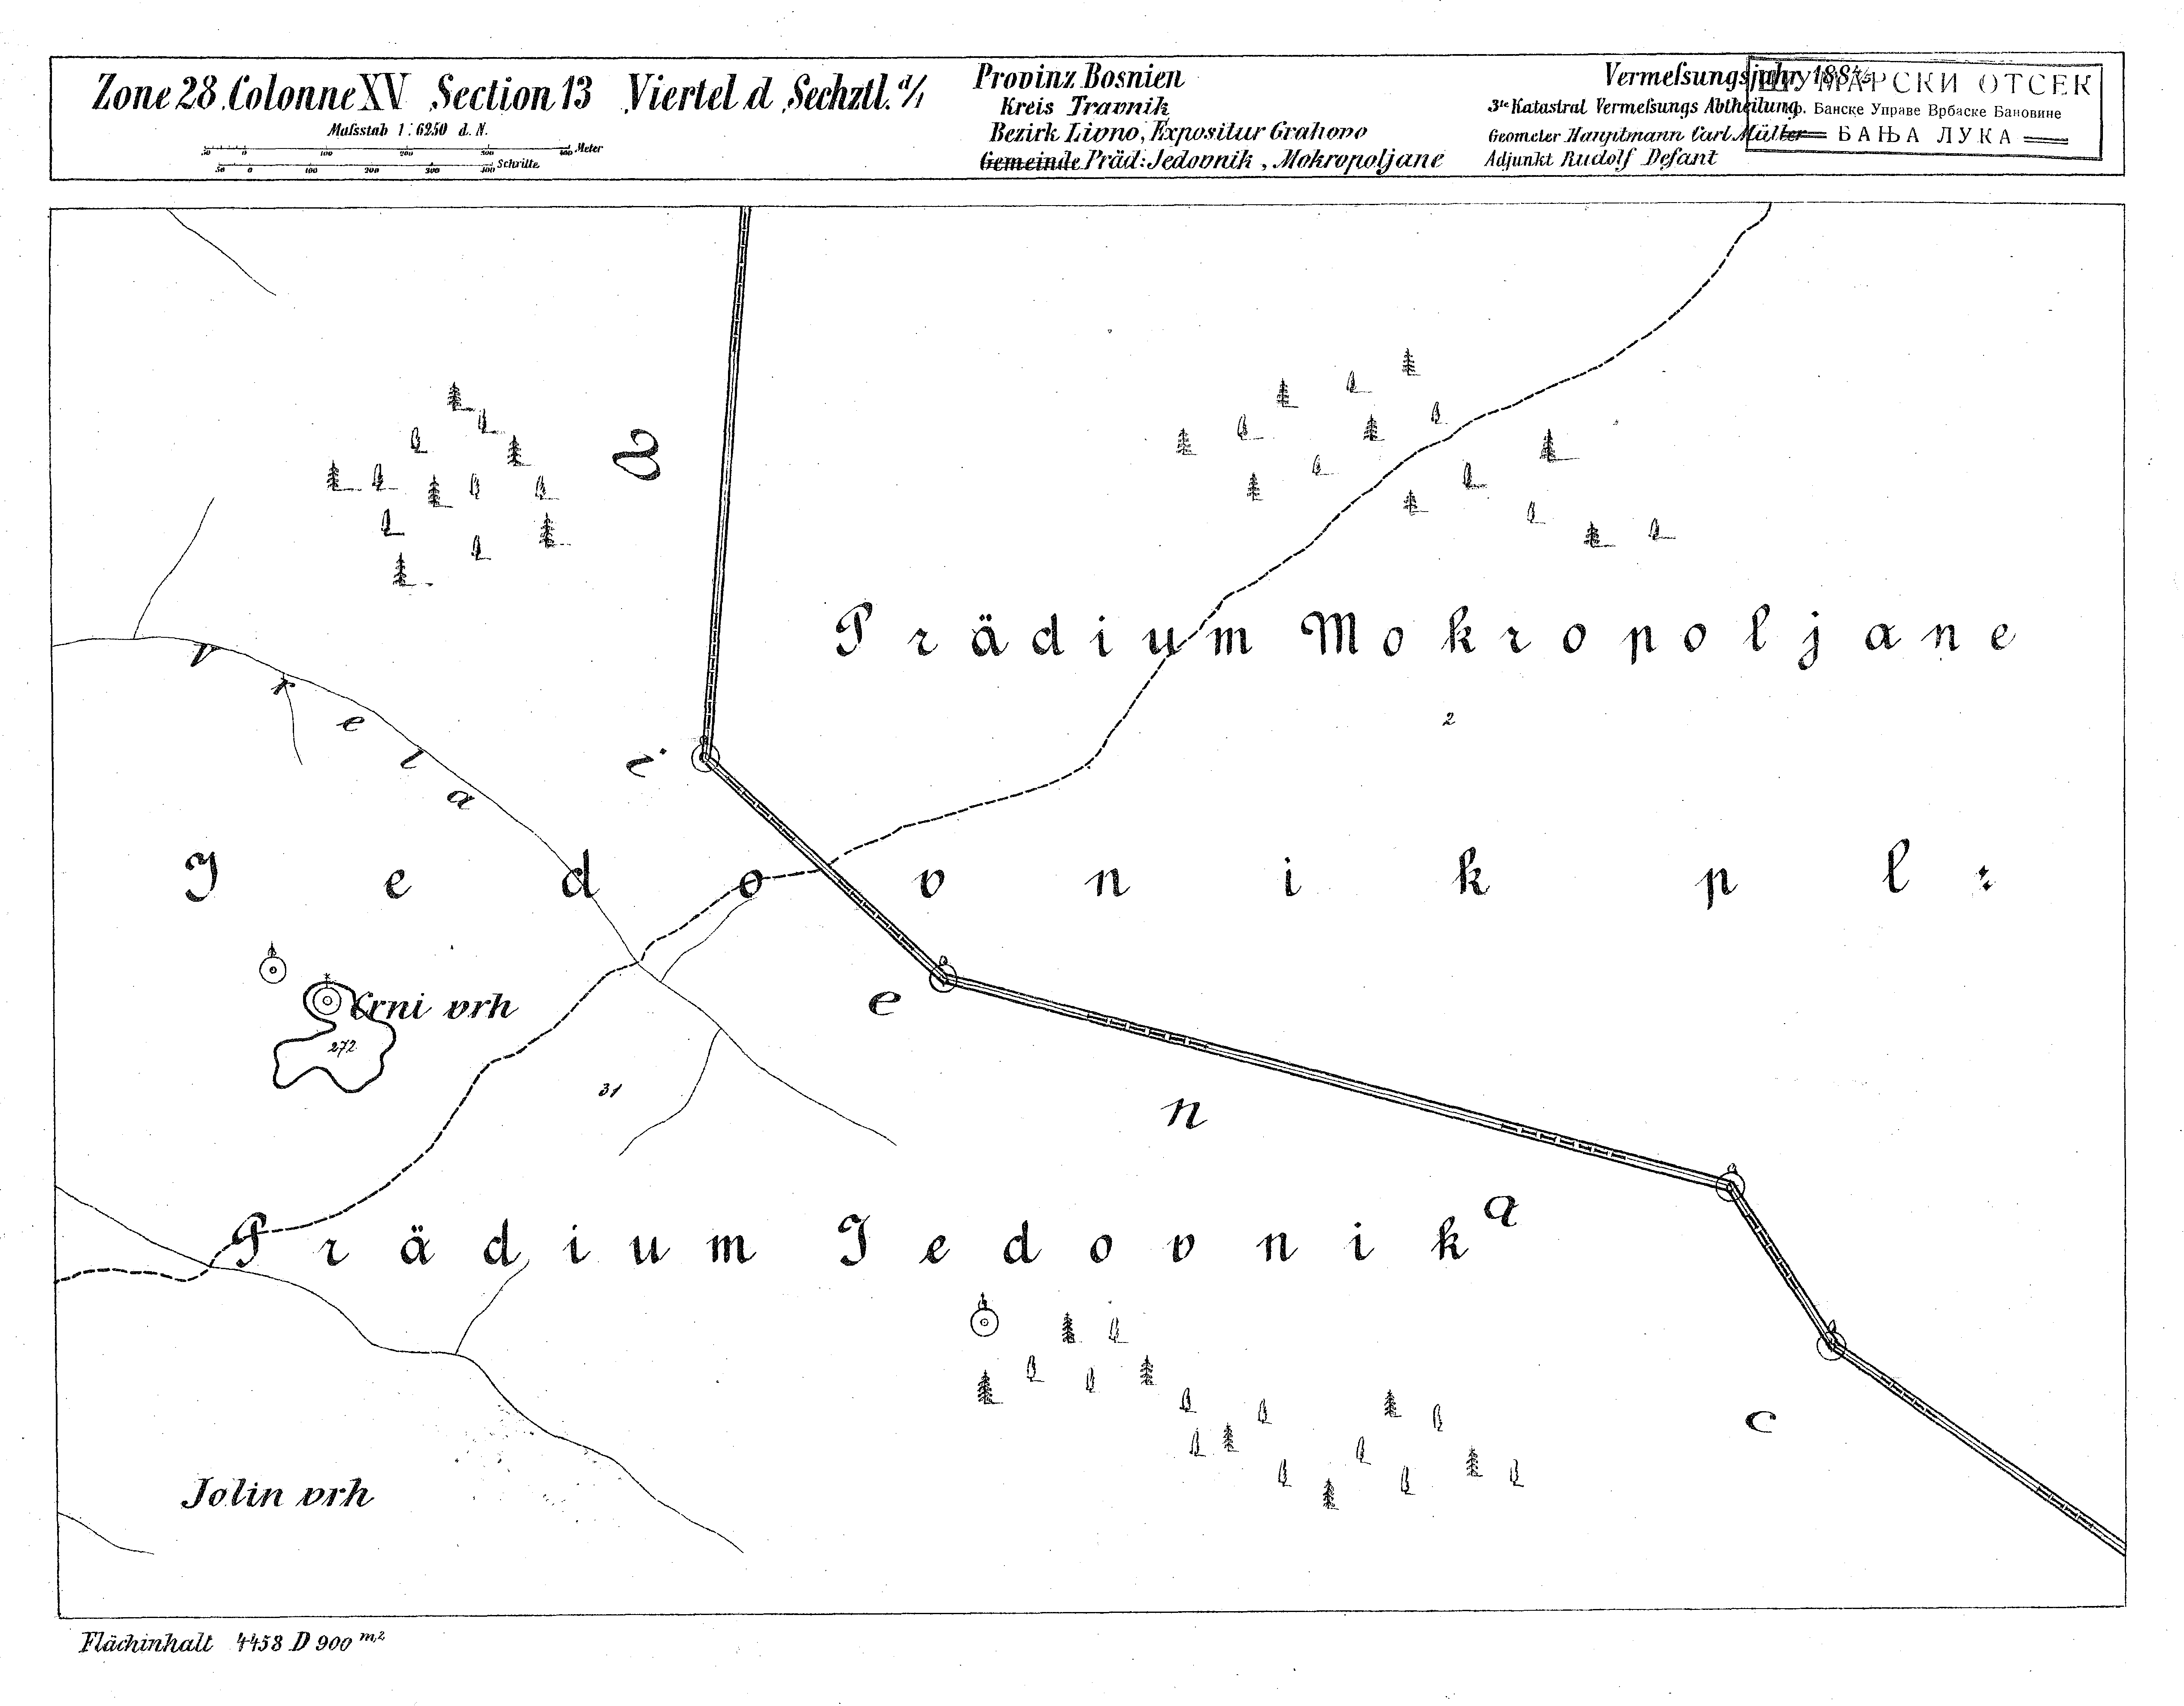 Zone 28 Colonne XV Section 13 Viertel d Sechztl. d/1
Maſsstab 1:6250 d. N.
50 0 100 200 300 400 Meter
50 0 100 200 300 400 Schritte
Provinz Bosnien
Kreis Travnik
Bezirk Livno, Expositur Grahovo
Gemeinde Präd: Jedovnik, Mokropoljane
Vermeſsungsjahr
3te Katastral Vermeſsungs Abtheilung
Geometer Hauptmann Carl Müller
Adjunkt Rudolf Defant
ШУМАРСКИ ОТСЕК
Банске Управе Врбаске Бановине
БАЊА ЛУКА
Prädium Mokropoljane
2
Vrela
Jedovnik pl:
Crni vrh
272
31
Prädium Jedovnik
Jolin vrh
Flächinhalt 4458 D 900 m2